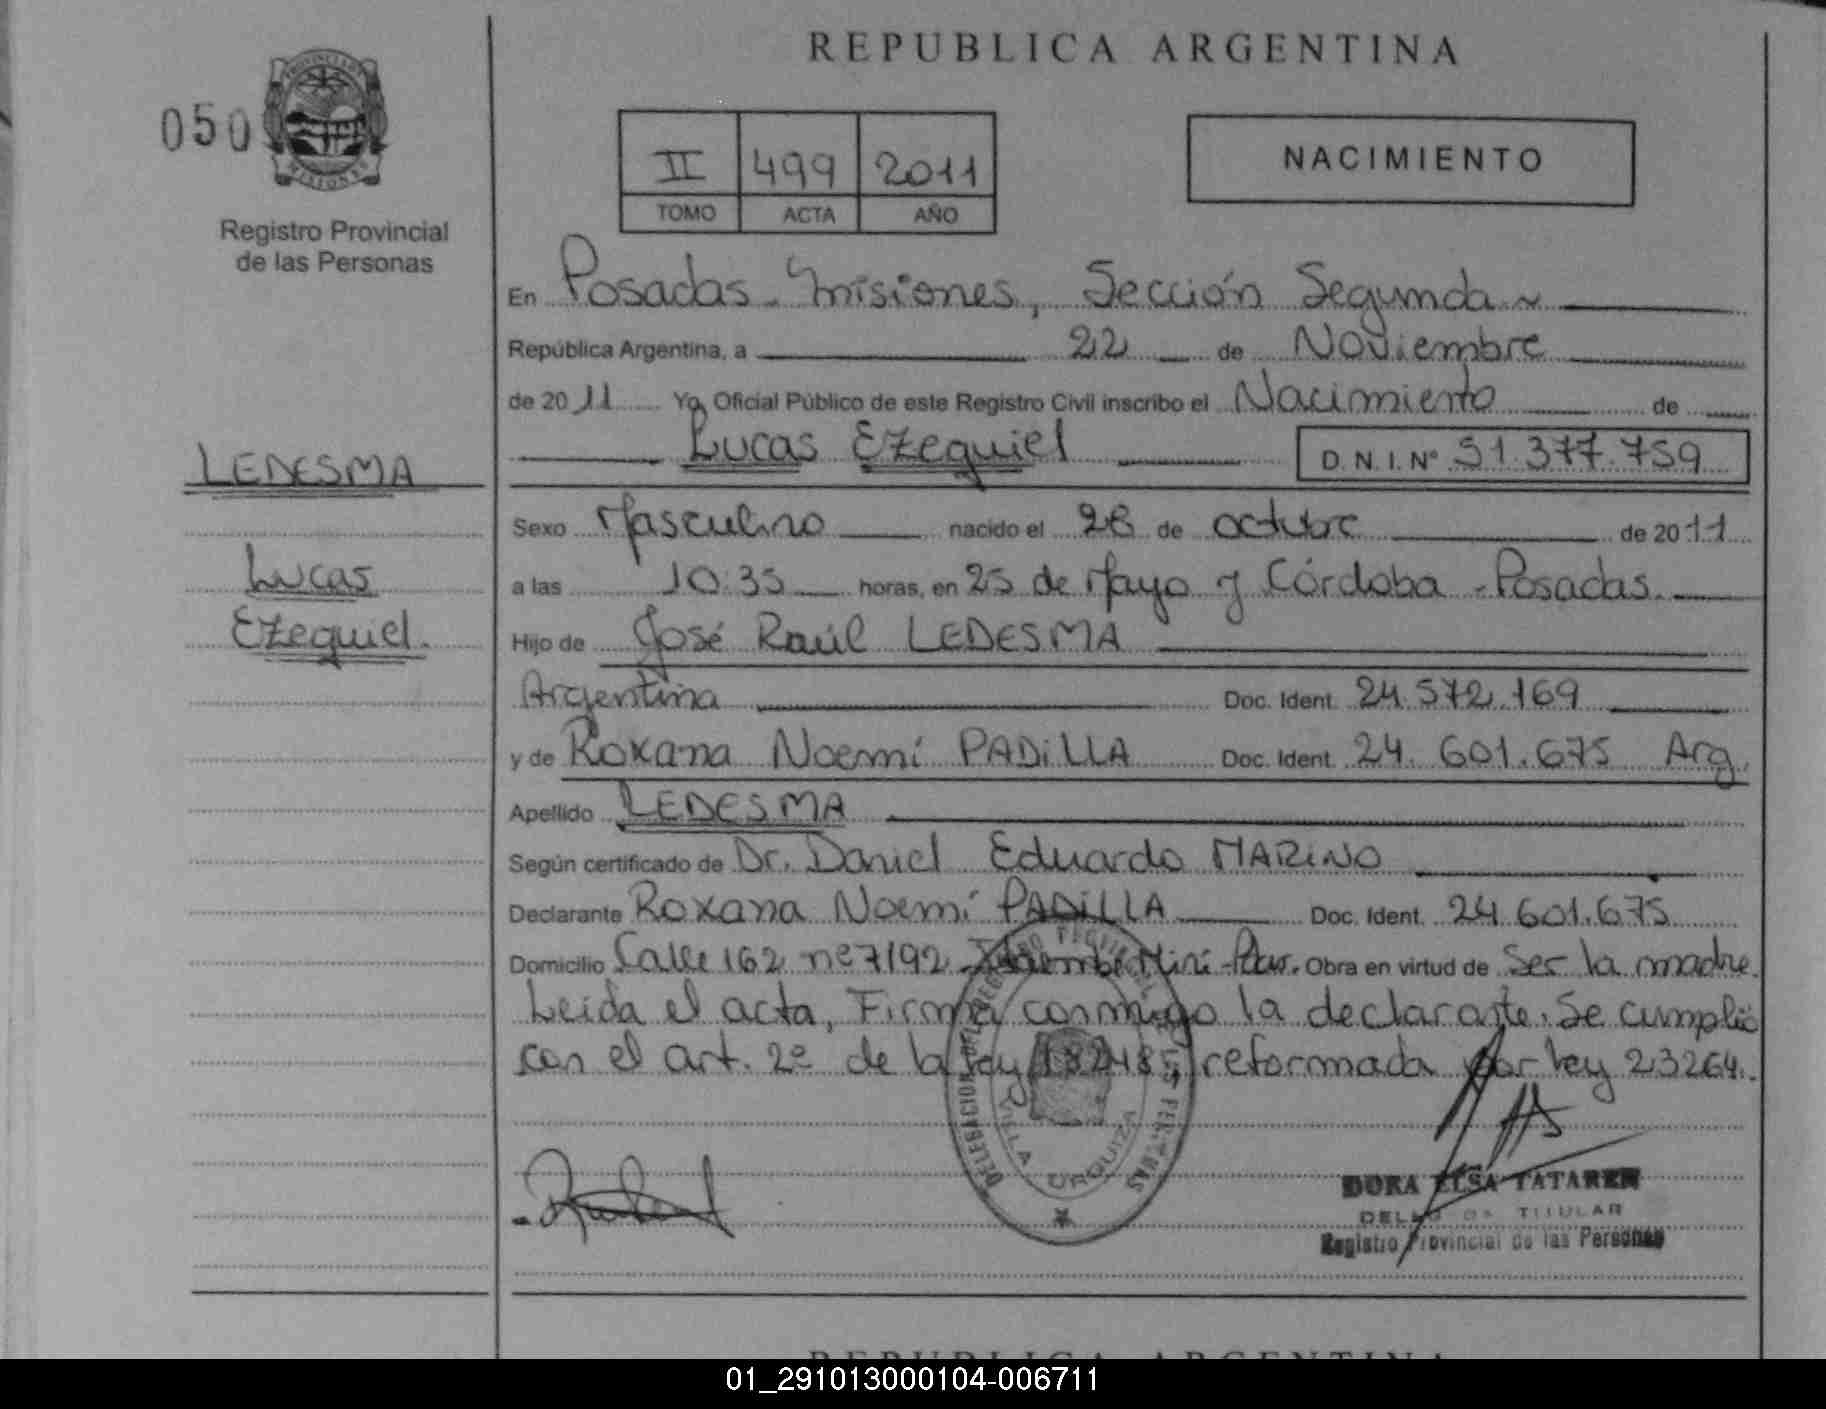 REPUBLICA ARGENTINA
050
PROVINCIA DE MISIONES
Registro Provincial
de las Personas
II 499 2011
TOMO ACTA AÑO
NACIMIENTO
En Posadas - Misiones, Sección Segunda
República Argentina, a 22 de Noviembre
de 2011 Yo, Oficial Público de este Registro Civil inscribo el Nacimiento de
Lucas Ezequiel D.N.I. Nº 51.377.759
LEDESMA
Lucas
Ezequiel.
Sexo Masculino nacido el 28 de octubre de 2011
a las 10:35 horas, en 25 de Mayo y Córdoba - Posadas.
Hijo de José Raúl LEDESMA
Argentina Doc. Ident. 24.572.169
y de Roxana Noemí PADILLA Doc. Ident. 24.601.675 Arg.
Apellido LEDESMA
Según certificado de Dr. Daniel Eduardo MARINO
Declarante Roxana Noemí PADILLA Doc. Ident. 24.601.675
Domicilio Calle 162 nº 7192 Miní - Obra en virtud de Ser la madre.
Leída el acta, Firma conmigo la declarante. Se cumplió
con el art. 2º de la ley 18248, reformada por ley 23264.
DELEGACION DEL REGISTRO
VILLA URQUIZA
DORA ELSA TATAREN
TITULAR
Registro Provincial de las Personas
REPUBLICA ARGENTINA
01_291013000104-006711